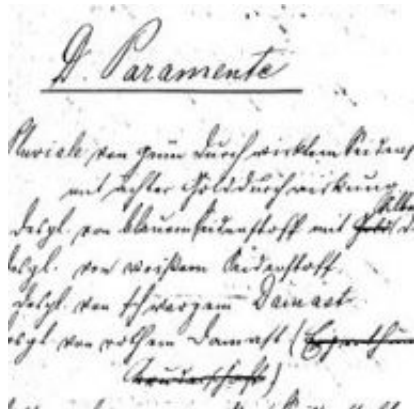 D. Paramente
Pluviale von grün durchwirktem Seidenst
mit ächter Golddurchwirkung
Silber
desgl. von blauem Seidenstoff mit Gold d
desgl. von weißem Seidenstoff
desgl. von schwarzem Damast
desgl von rothem Damast (Eigenthum
Bruderschaft)